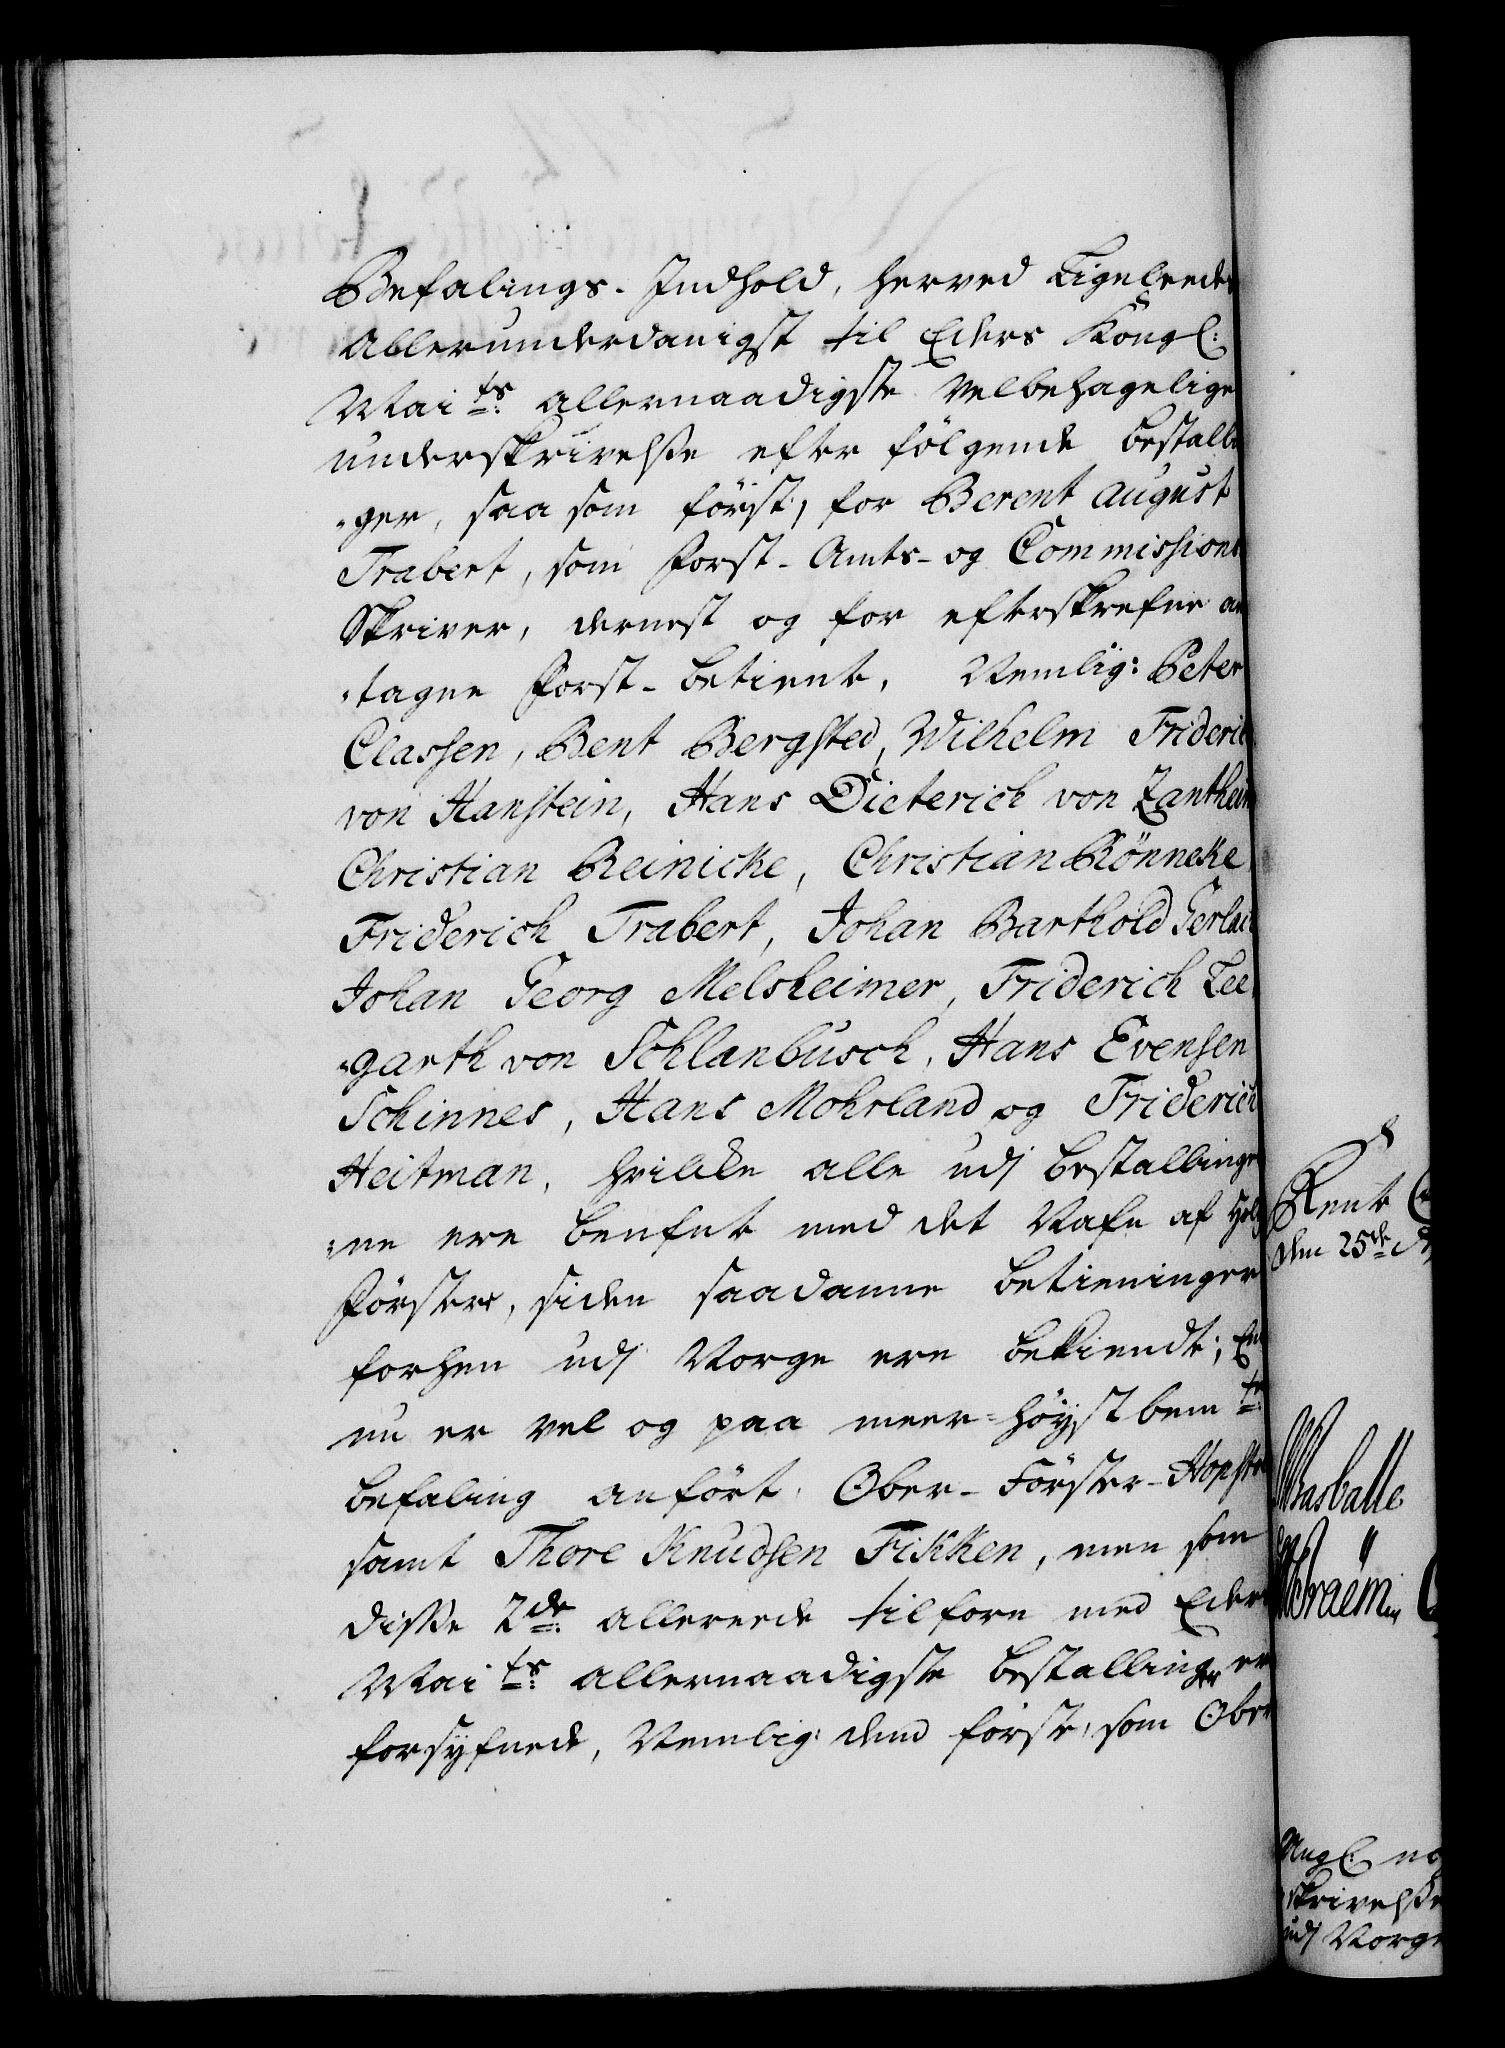 Befalings-Indhold, herved Ligeleedes
Allerunderdanigst til Eders Kongl:
Maits: allernaadigste Velbehagelige
underskrivelsse efter følgende bestall
ger, saa som først, for Berent August
Trabert, som Forst- Amts- og Commissions
Skriver, dernest og for efterskrefne an
tagne Forst-betiente, Nemlig: Peter
Classen, Bent Bergsted, Wilhelm Friderich
von Hanstein, Hans Dieterich von Zantheim
Christian Reinicke, Christian Rönneke,
Friderich Trabert, Johan Barthold Gerlach
Johan Georg Melsheimer, Friderich Lee
garth von Schlanbusch, Hans Evensen
Schinnes, Hans Mohrland og Friderich
Heitman, hvilke alle udj bestallinger
ne ere benefnt med det Nafn af Holtz
Förster, siden saadanne betieninger
forhen udj Norge ere bekiendt; End
nu er vel og paa meer-høystbemte:
befaling anført Ober-Förster-Hopst
samt Thore Knudsen Fikken, men som
disse 2de allereede tilforn med Eders
Maits: allernaadigste bestallinger er
forsÿfnede, Nemlig: dend første, som Ober
Rente
den 25de
Wasballe
Angl: no
skrivelsse
udj Norge